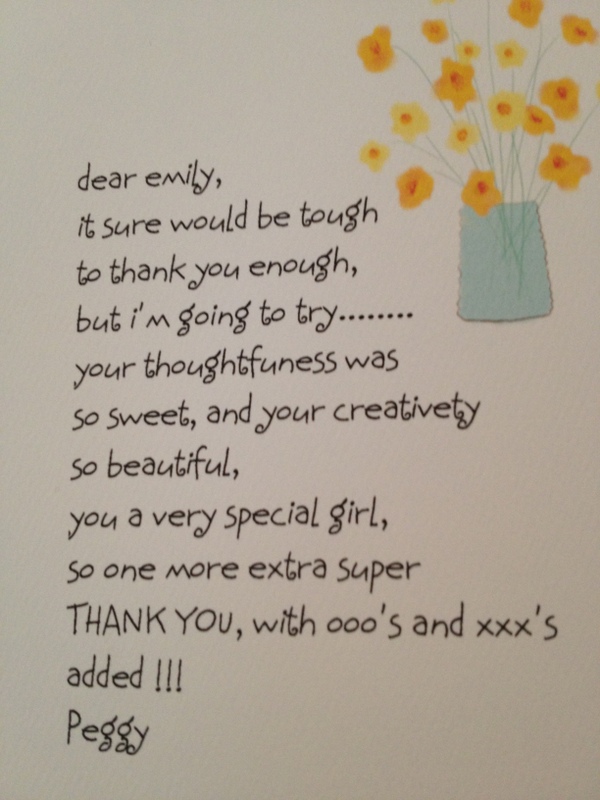 dear emily,
it sure would be tough
to thank you enough,
but i'm going to try........
your thoughtfuness was
so sweet, and your creativety
so beautiful,
you a very special girl,
so one more extra super
THANK YOU, with ooo's and xxx's
added !!!
Peggy